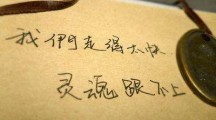 我們走得太快
灵魂跟不上